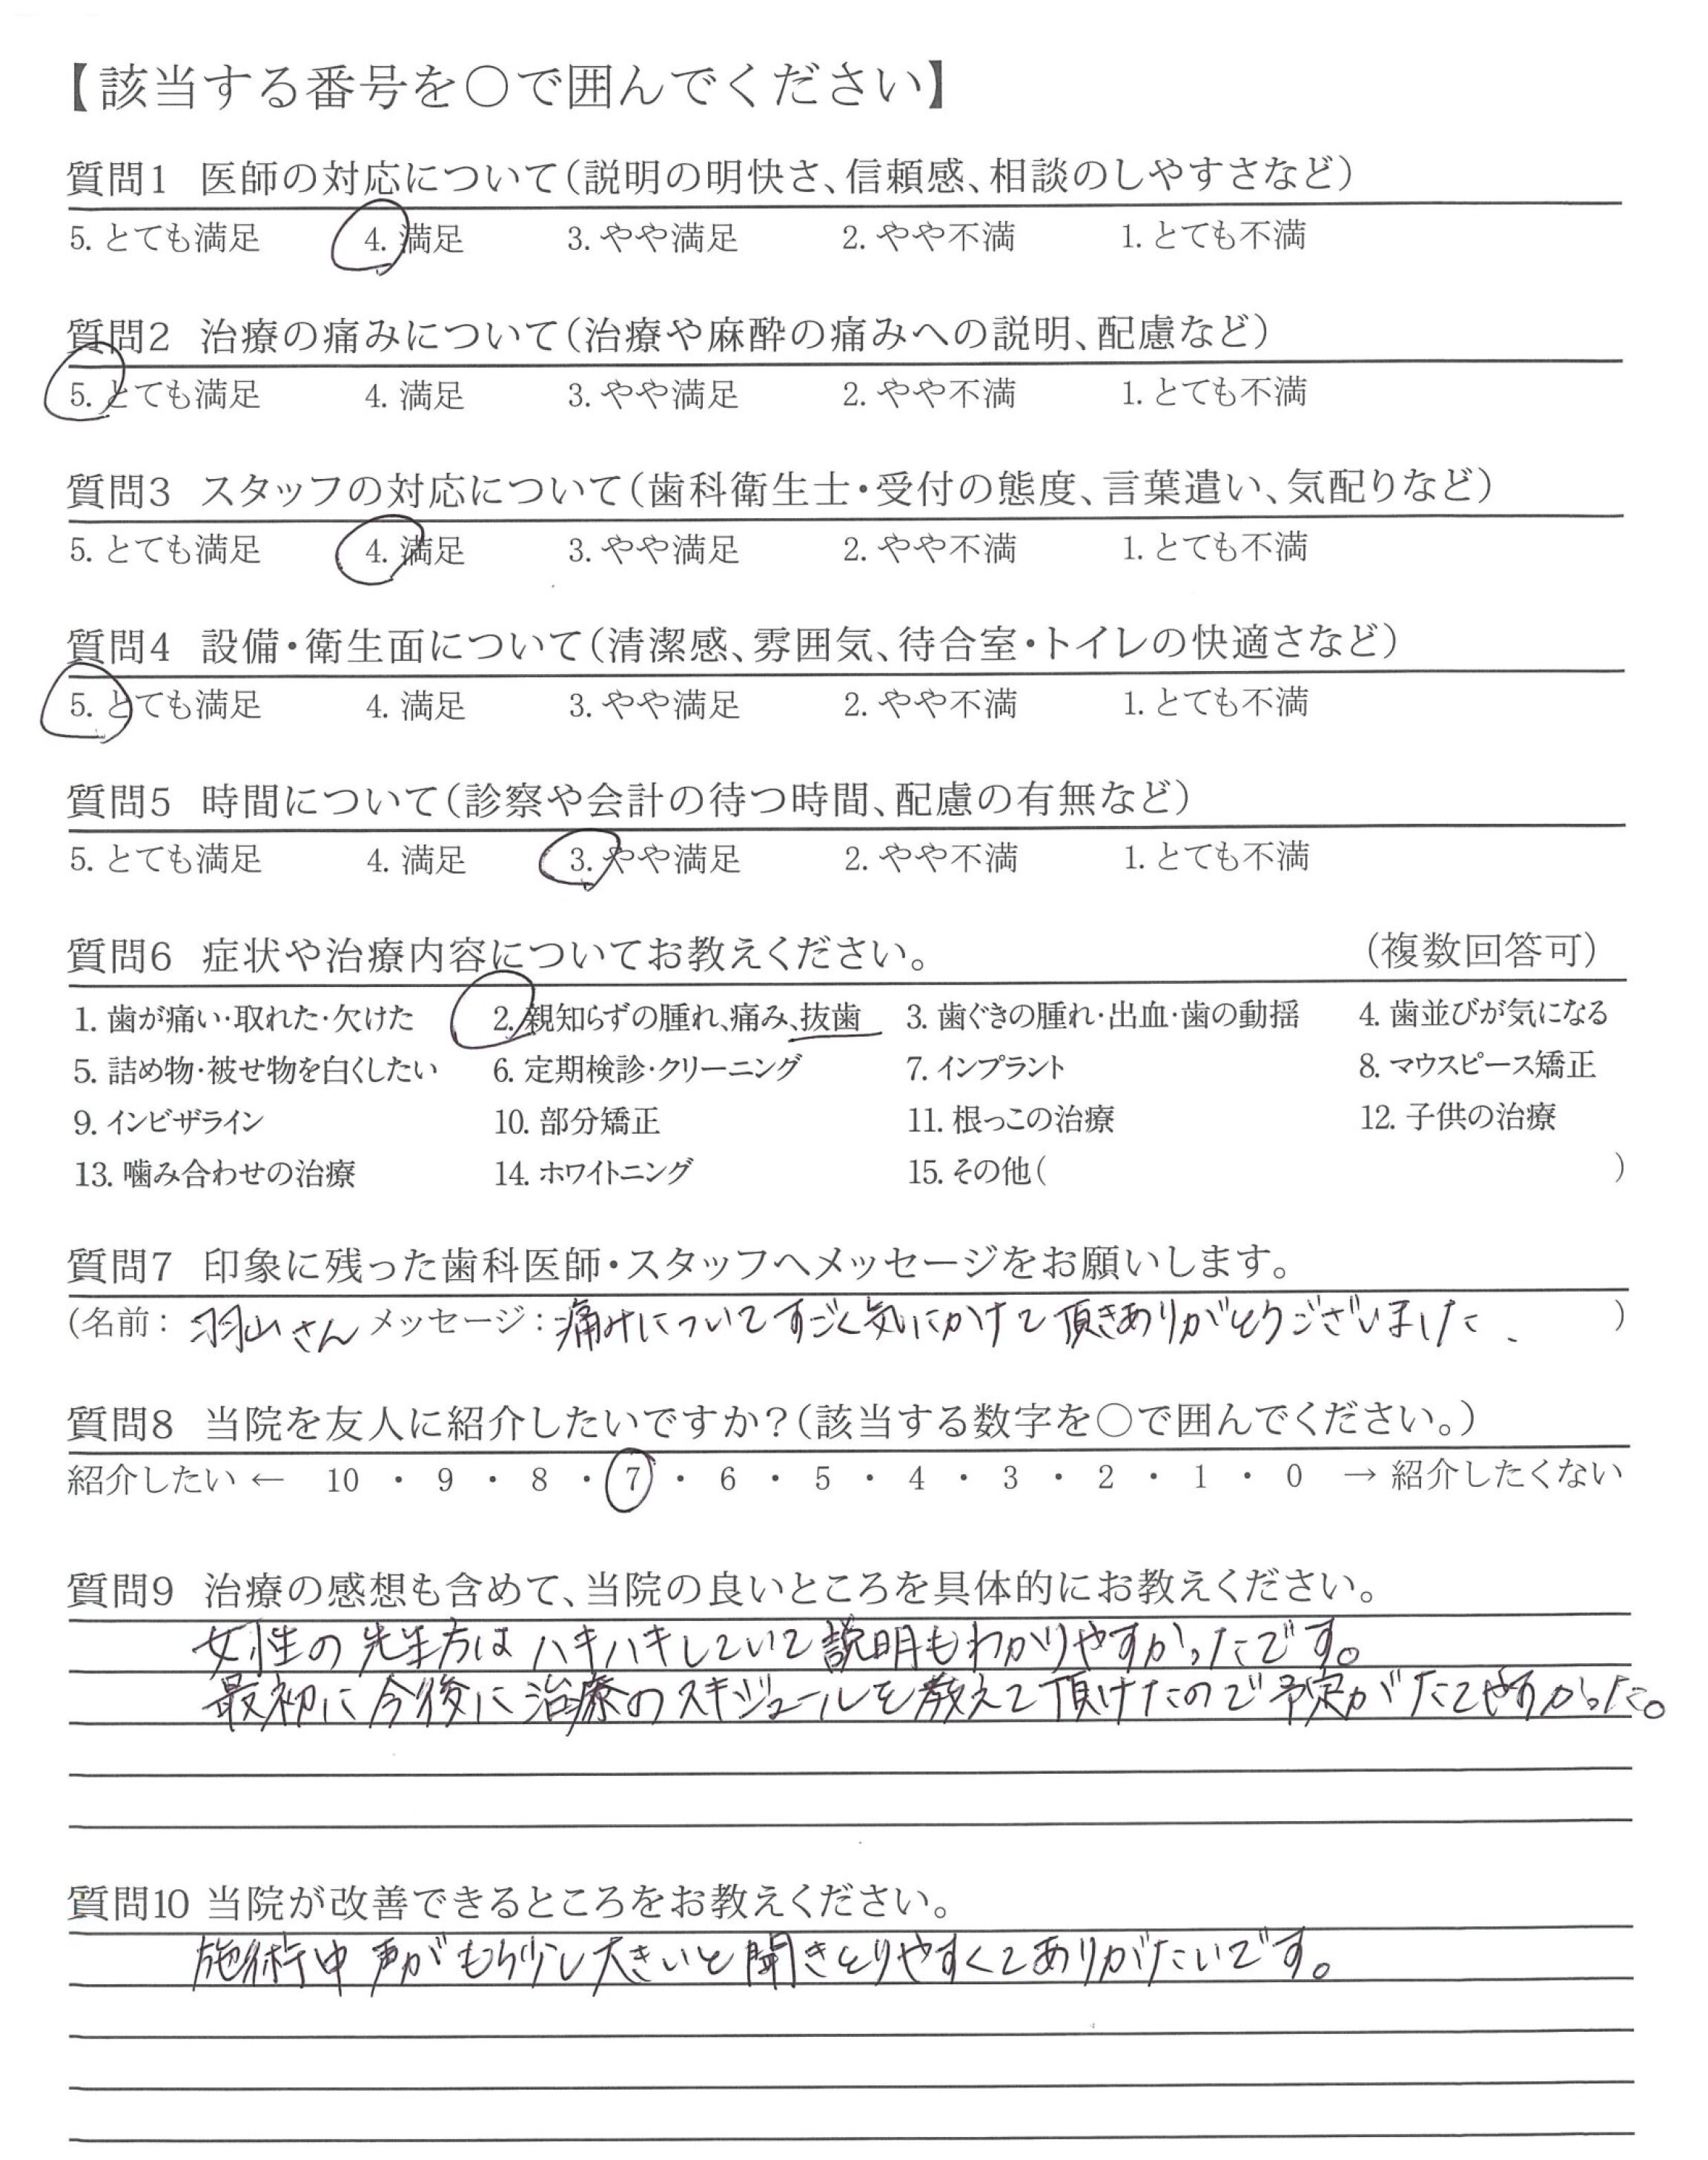 【該当する番号を○で囲んでください】
質問1 医師の対応について(説明の明快さ、信頼感、相談のしやすさなど)
5. とても満足 4. 満足 3. やや満足 2. やや不満 1. とても不満
質問2 治療の痛みについて(治療や麻酔の痛みへの説明、配慮など)
5. とても満足 4. 満足 3. やや満足 2. やや不満 1. とても不満
質問3 スタッフの対応について(歯科衛生士・受付の態度、言葉遣い、気配りなど)
5. とても満足 4. 満足 3. やや満足 2. やや不満 1. とても不満
質問4 設備・衛生面について(清潔感、雰囲気、待合室・トイレの快適さなど)
5. とても満足 4. 満足 3. やや満足 2. やや不満 1. とても不満
質問5 時間について(診察や会計の待つ時間、配慮の有無など)
5. とても満足 4. 満足 3. やや満足 2. やや不満 1. とても不満
質問6 症状や治療内容についてお教えください。 (複数回答可)
1. 歯が痛い・取れた・欠けた 2. 親知らずの腫れ、痛み、抜歯 3. 歯ぐきの腫れ・出血・歯の動揺 4. 歯並びが気になる
5. 詰め物・被せ物を白くしたい 6. 定期検診・クリーニング 7. インプラント 8. マウスピース矯正
9. インビザライン 10. 部分矯正 11. 根っこの治療 12. 子供の治療
13. 噛み合わせの治療 14. ホワイトニング 15. その他( )
質問7 印象に残った歯科医師・スタッフへメッセージをお願いします。
(名前: 羽山さん メッセージ: 痛みについてすごく気にかけて頂きありがとうございました、 )
質問8 当院を友人に紹介したいですか?(該当する数字を○で囲んでください。)
紹介したい ← 10 ・ 9 ・ 8 ・ 7 ・ 6 ・ 5 ・ 4 ・ 3 ・ 2 ・ 1 ・ 0 → 紹介したくない
質問9 治療の感想も含めて、当院の良いところを具体的にお教えください。
女性の先生方はハキハキしていて説明もわかりやすかったです。
最初に今後に治療のスキジュールを教えて頂けたので予定がたてやすかった。
質問10 当院が改善できるところをお教えください。
施術中声がもう少し大きいと聞きとりやすくてありがたいです。